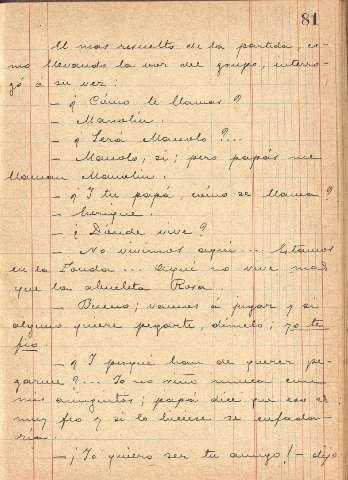 81
El mas resuelto de la partida, co-
mo llevando la voz del grupo, interro-
gó á su vez:
— ¿Cómo te llamas?
— Manolin.
— ¿Será Manolo?...
— Manolo, si; pero papás me
llaman Manolin.
— ¿Y tu papá, cómo se llama?
— Enrique.
— ¿Dónde vive?
— No vivimos aqui... Estamos
en la Fonda... aqui no vive mas
que la abuelita Rosa.
— Bueno; vamos á jugar y si
alguno quiere pegarte, dímelo; yo te
fio.
— ¿Y porqué han de querer pe-
garme?... Yo no riño nunca con
mis amiguitos; papá dice que eso es
muy feo y si lo hiciese se enfada-
ria.
— ¡Yo quiero ser tu amigo! — dijo